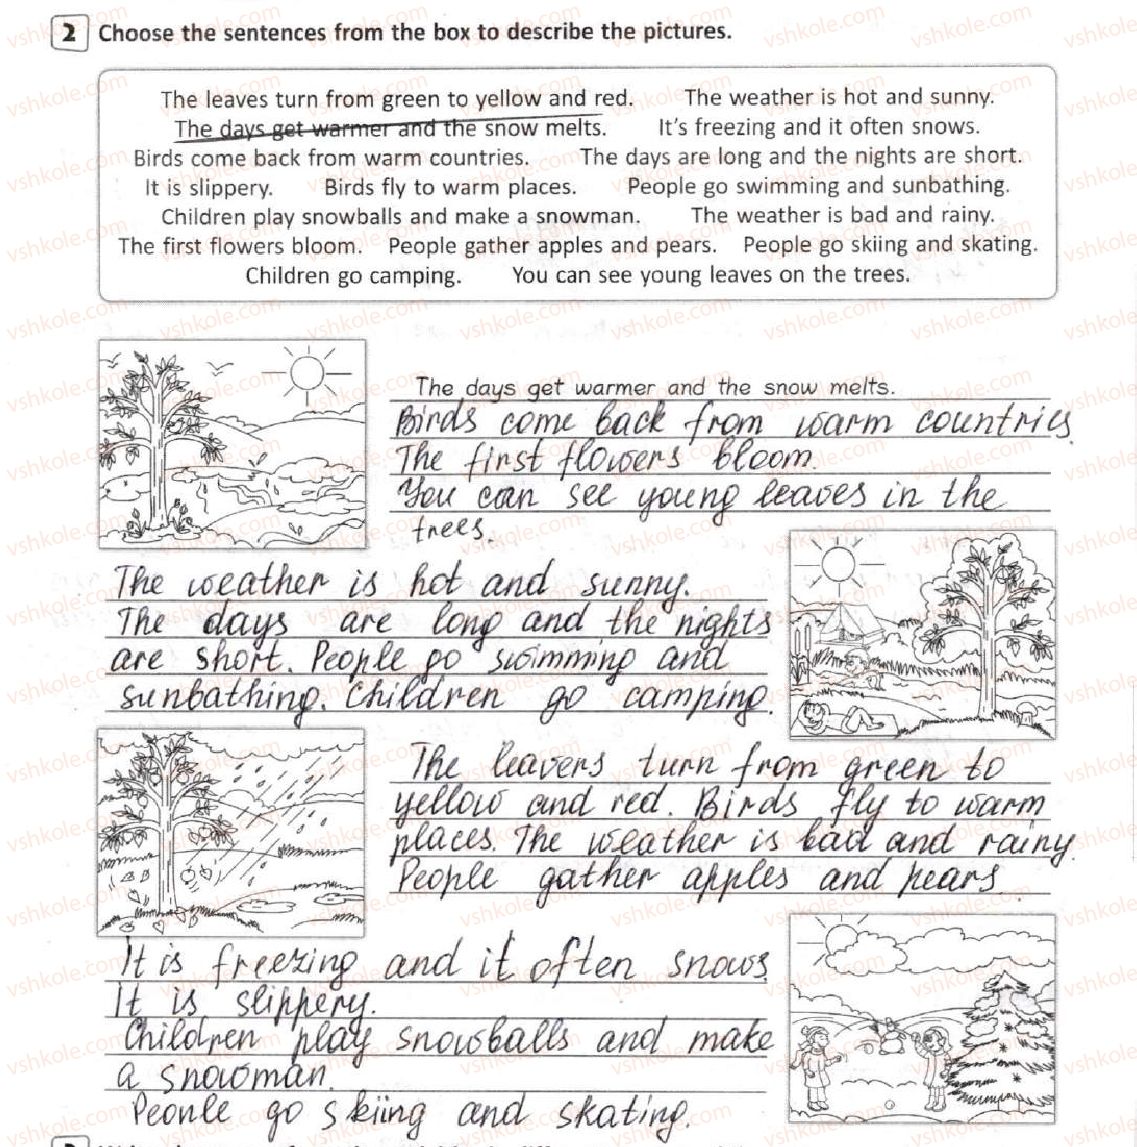 2 Choose the sentences from the box to describe the pictures.
The leaves turn from green to yellow and red. The weather is hot and sunny.
The days get warmer and the snow melts. It's freezing and it often snows.
Birds come back from warm countries. The days are long and the nights are short.
It is slippery. Birds fly to warm places. People go swimming and sunbathing.
Children play snowballs and make a snowman. The weather is bad and rainy.
The first flowers bloom. People gather apples and pears. People go skiing and skating.
Children go camping. You can see young leaves on the trees.
The days get warmer and the snow melts.
Birds come back from warm countries.
The first flowers bloom.
You can see young leaves in the
trees.
The weather is hot and sunny.
The days are long and the nights
are short. People go swimming and
sunbathing. Children go camping.
The leavers turn from green to
yellow and red. Birds fly to warm
places. The weather is bad and rainy.
People gather apples and pears.
It is freezing and it often snows.
It is slippery.
Children play snowballs and make
a snowman.
People go skiing and skating.
vshkole.com